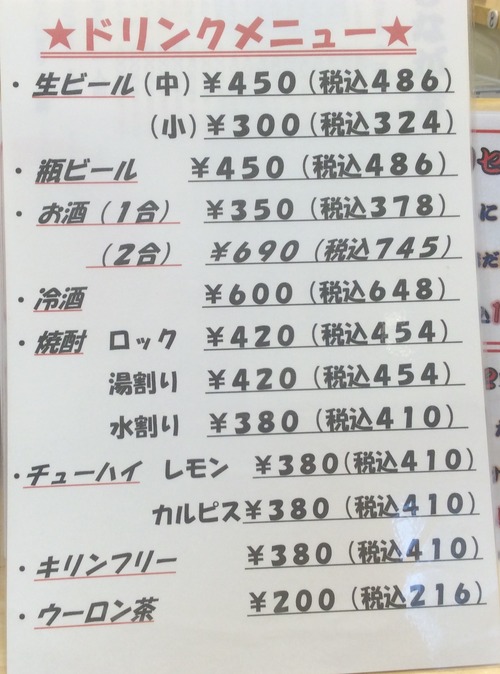 ★ドリンクメニュー★
・生ビール（中）￥４５０（税込４８６）
（小）￥３００（税込３２４）
・瓶ビール ￥４５０（税込４８６）
・お酒（１合） ￥３５０（税込３７８）
（２合） ￥６９０（税込７４５）
・冷酒 ￥６００（税込６４８）
・焼酎 ロック ￥４２０（税込４５４）
湯割り ￥４２０（税込４５４）
水割り ￥３８０（税込４１０）
・チューハイ レモン ￥３８０（税込４１０）
カルピス￥３８０（税込４１０）
・キリンフリー ￥３８０（税込４１０）
・ウーロン茶 ￥２００（税込２１６）